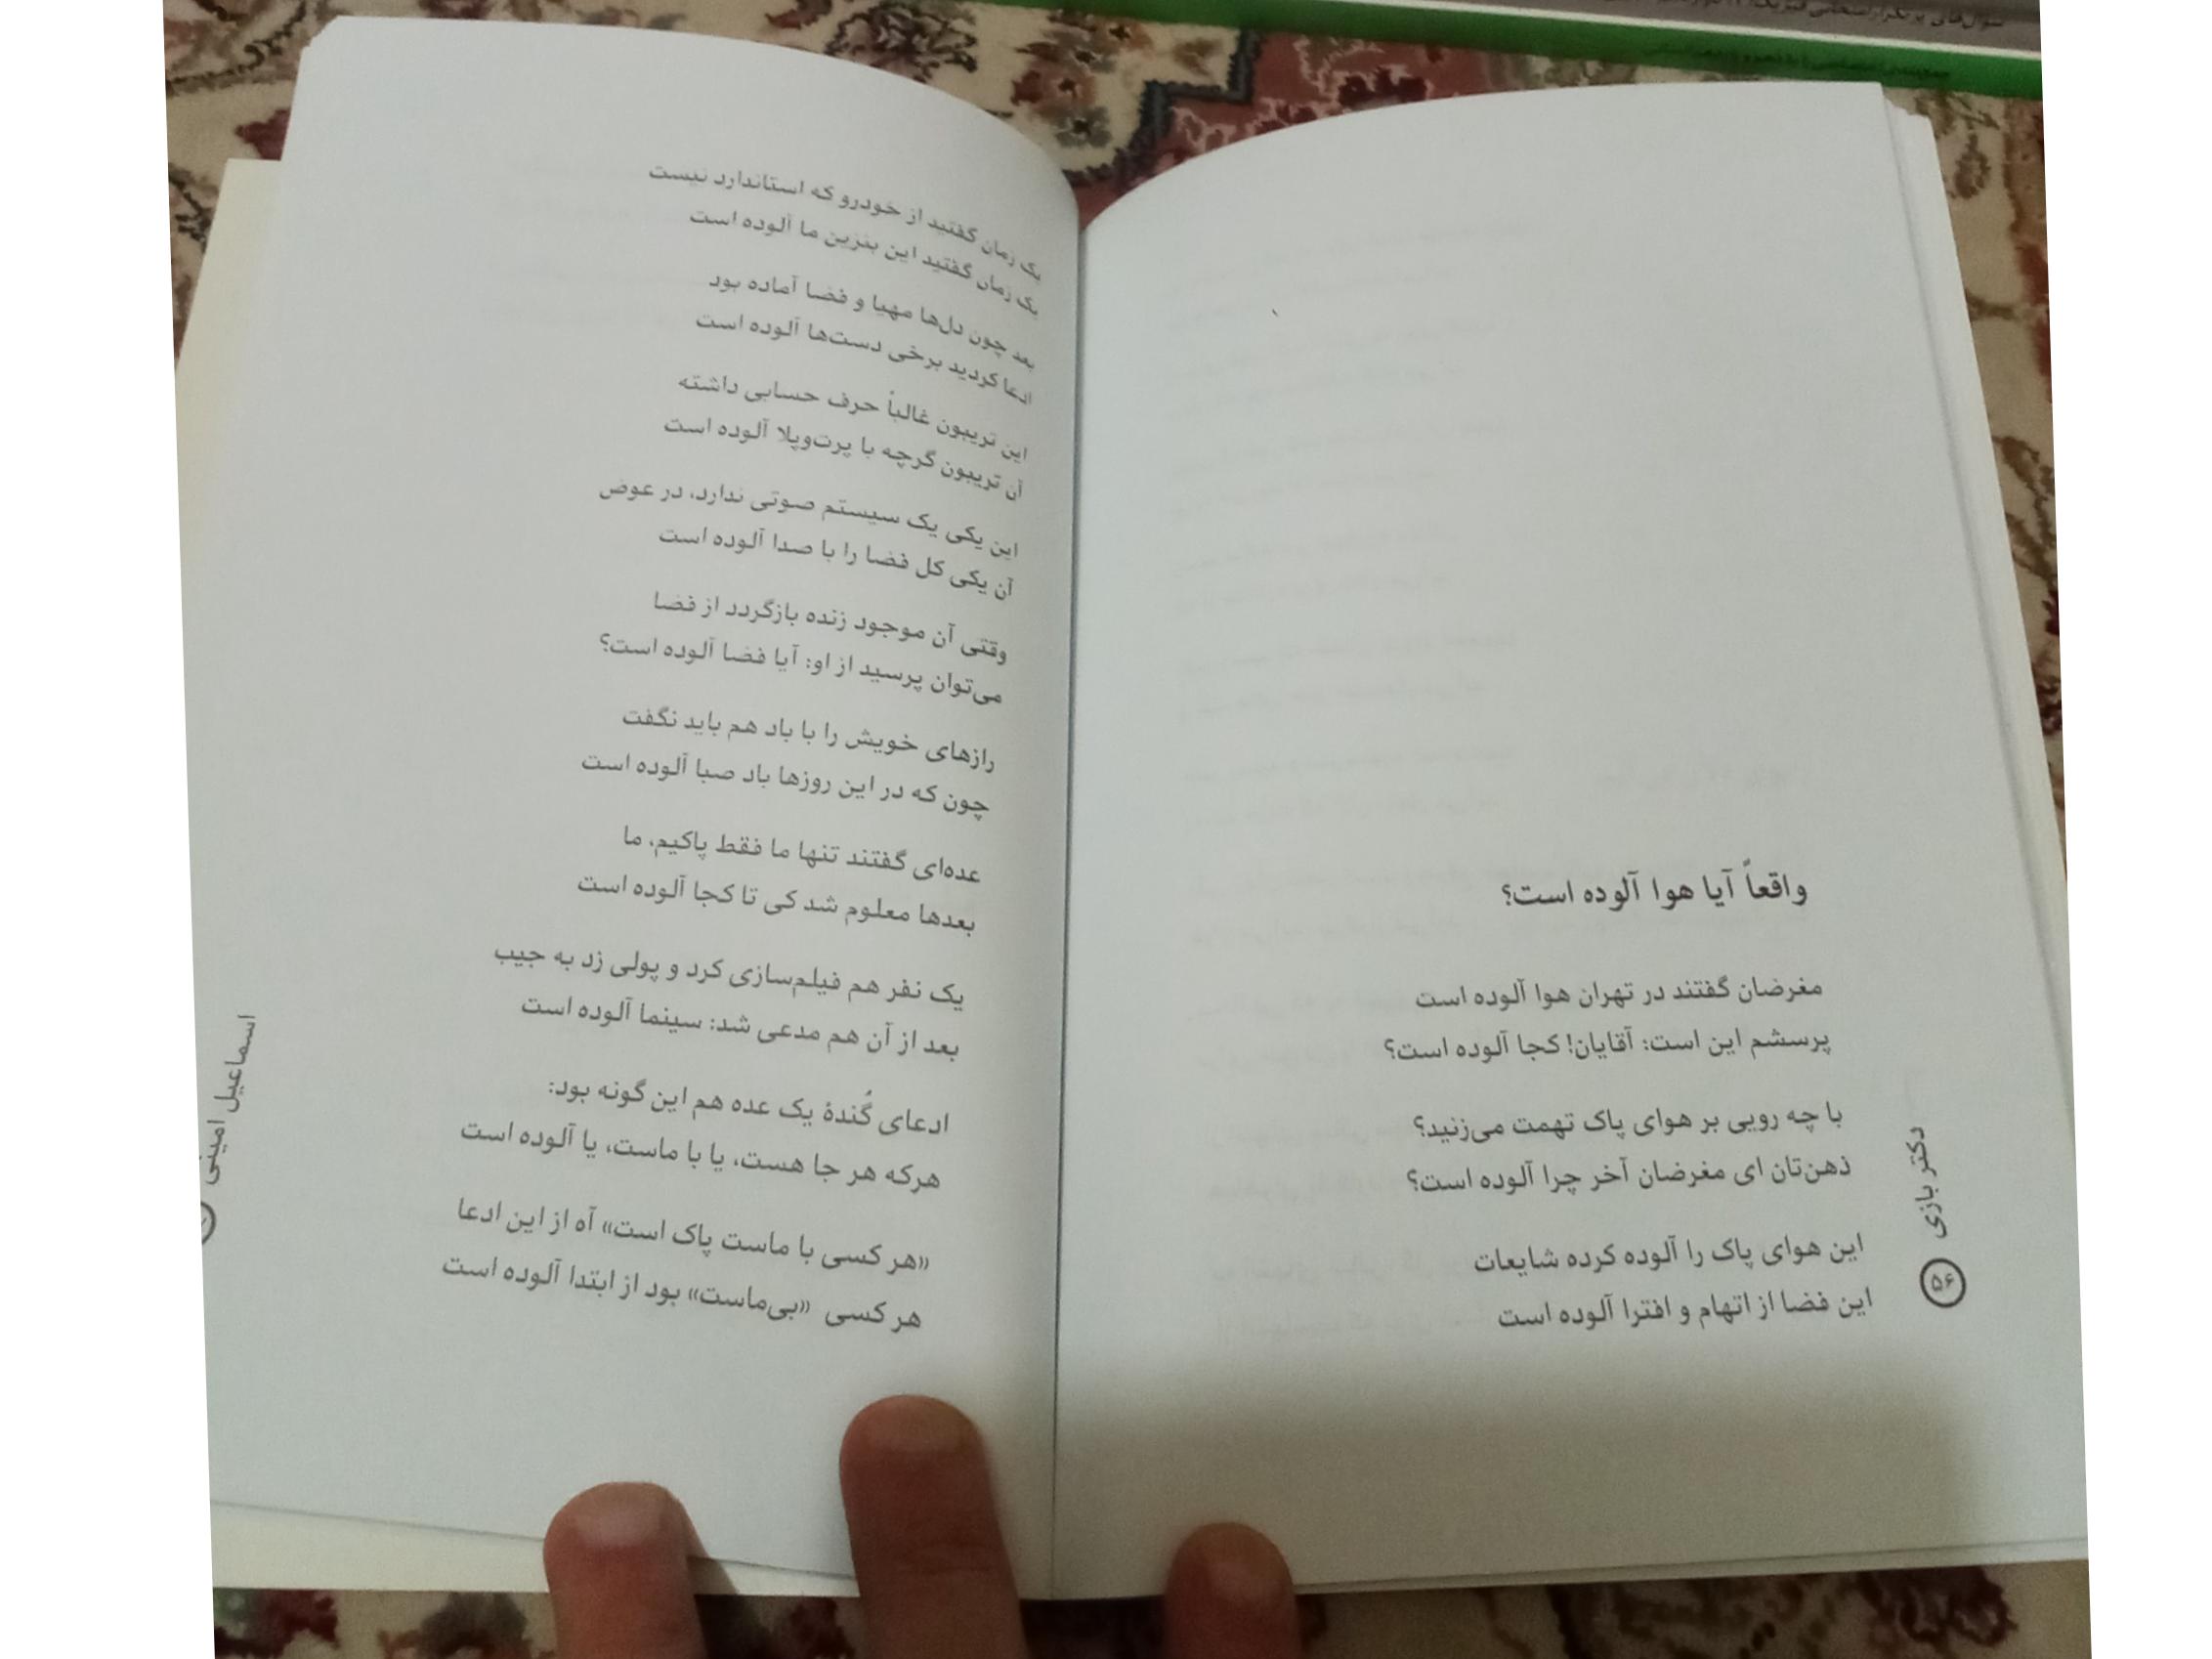 واقعاً آیا هوا آلوده است؟
مغرضان گفتند در تهران هوا آلوده است
پرسشم این است: آقایان! کجا آلوده است؟
با چه رویی بر هوای پاک تهمت می‌زنید؟
ذهن‌تان ای مغرضان آخر چرا آلوده است؟
این هوای پاک را آلوده کرده شایعات
این فضا از اتهام و افترا آلوده است
دکتر بازی
۵۶
یک زمان گفتید از خودرو که استاندارد نیست
یک زمان گفتید این بنزین ما آلوده است
بعد چون دل‌ها مهیا و فضا آماده بود
ادعا کردید برخی دست‌ها آلوده است
این تریبون غالباً حرف حسابی داشته
آن تریبون گرچه با پرت‌وپلا آلوده است
این یکی یک سیستم صوتی ندارد، در عوض
آن یکی کل فضا را با صدا آلوده است
وقتی آن موجود زنده بازگردد از فضا
می‌توان پرسید از او: آیا فضا آلوده است؟
رازهای خویش را با باد هم باید نگفت
چون که در این روزها باد صبا آلوده است
عده‌ای گفتند تنها ما فقط پاکیم، ما
بعدها معلوم شد کی تا کجا آلوده است
یک نفر هم فیلم‌سازی کرد و پولی زد به جیب
بعد از آن هم مدعی شد: سینما آلوده است
ادعای گُندهٔ یک عده هم این گونه بود:
هرکه هر جا هست، یا با ماست، یا آلوده است
«هر کسی با ماست پاک است» آه از این ادعا
هر کسی «بی‌ماست» بود از ابتدا آلوده است
اسماعیل امینی